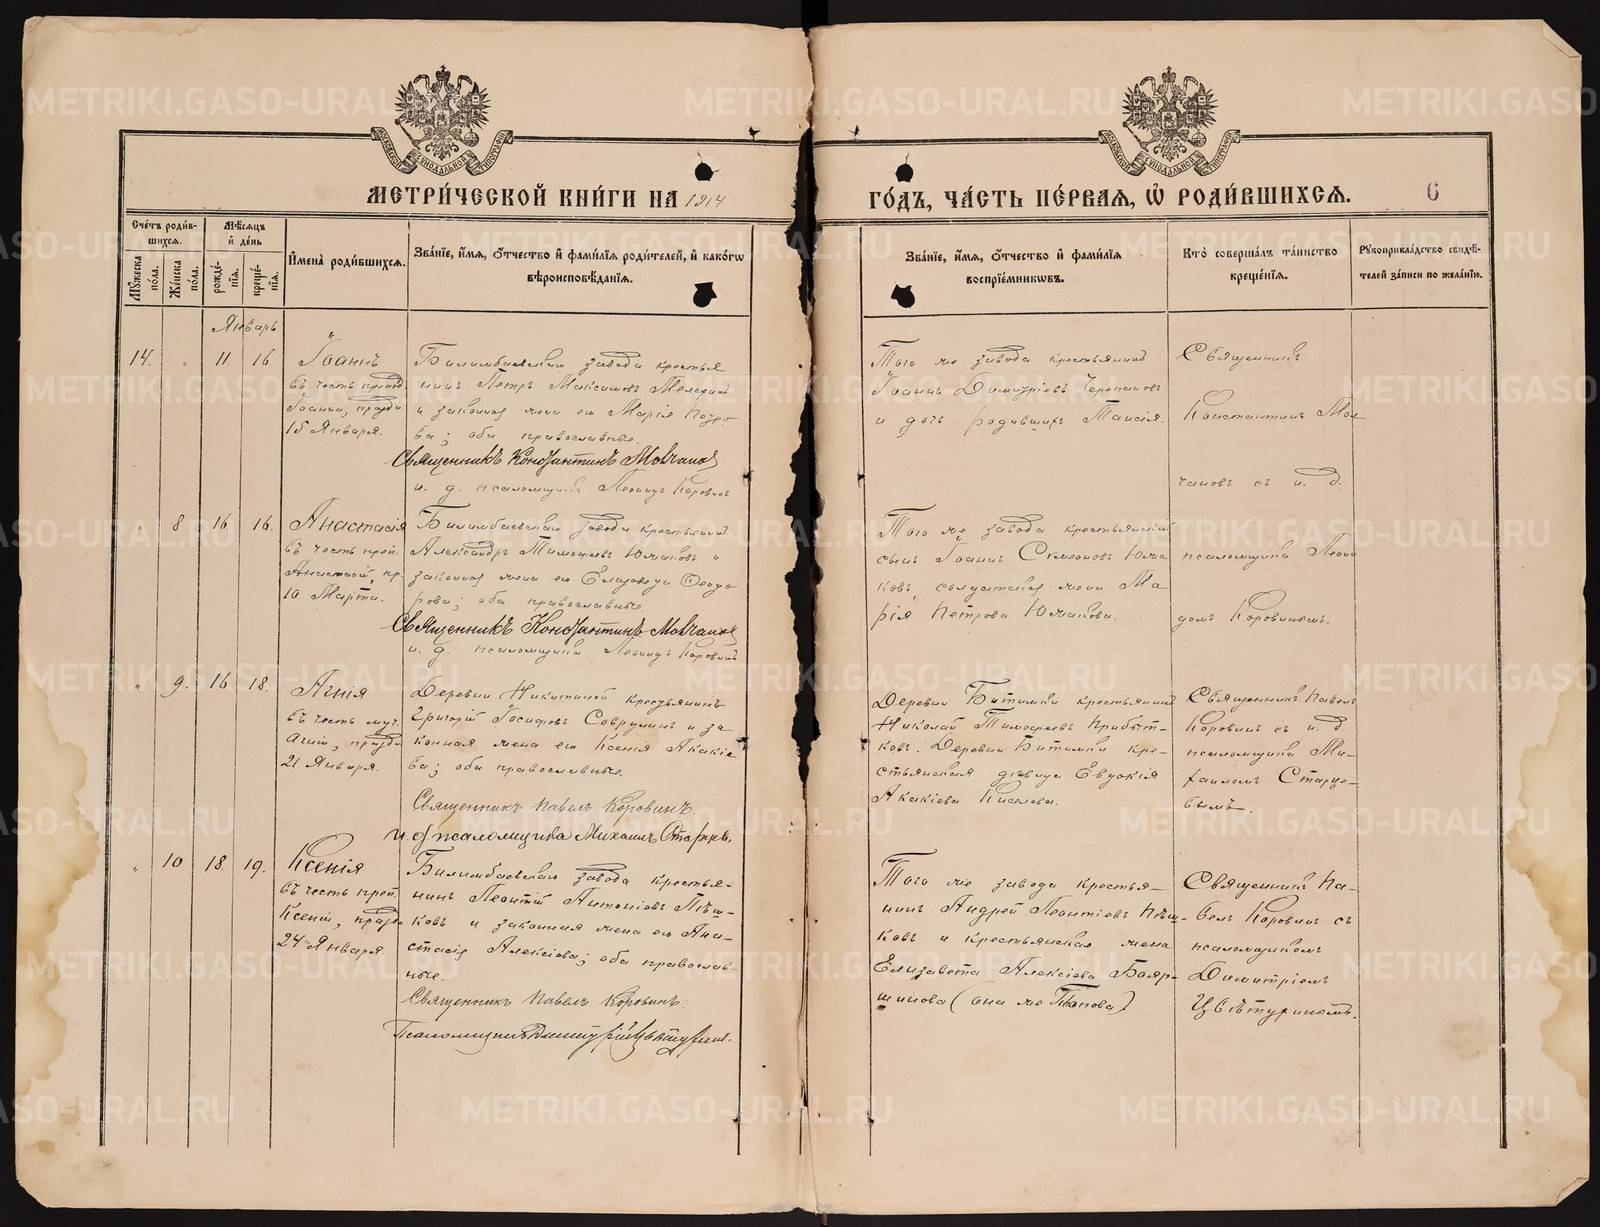 МЕТРИ́ЧЕСКОЙ КНИ́ГИ НА 1914
ГО́ДЪ, ЧА́СТЬ ПЕ́РВАЯ, Ѽ РОДИ́ВШИХСЯ.
6
Сче́тъ роди́в-
шихся.
Мѣ́сяцъ
и҆ де́нь
Му́жеска
по́ла.
Же́нска
по́ла.
рожде́-
нїѧ.
креще́-
нїѧ.
И҆мена̀ роди́вшихся.
Зва́нїе, и҆́мя, ѻ҆́тчество и҆ фамі́лїя роди́телей, и҆ како́гѡ
вѣроисповѣ́данїя.
Зва́нїе, и҆́мя, ѻ҆́тчество и҆ фамі́лїя
воспрїе́мниковъ.
Кто̀ соверша́лъ та́инство
креще́нїя.
Рꙋкоприкла́дство свидѣ́-
телей за́писи по жела́нїю.
Январь
14.
11
16
Іоаннъ
въ честь препод.
Іоанна, праздн.
15 Января.
Билимбаевскаго завода крестья
нинъ Петръ Максимовъ
и законная жена его Марія Петро
ва; оба православные.
Священникъ Константинъ Мовчанов
и. д. псаломщика Леонидъ Коровинъ
Того же завода крестьянинъ
Іоаннъ Димитріевъ Черепановъ
и дочь родившихъ Таисія.
Священникъ
Константинъ Мов
чановъ съ и. д.
псаломщика Леони
домъ Коровинымъ.
8
16
16.
Анастасія
въ честь преп.
Анастасіи, пр.
10 Марта.
Билимбаевскаго завода крестьянинъ
Александръ Тимофеевъ Южаковъ и
законная жена его Елизавета Ѳеодо
рова; оба православные.
Священникъ Константинъ Мовчанов
и. д. псаломщика Леонидъ Коровинъ
Того же завода крестьянскій
сынъ Іоаннъ Симеоновъ Южа
ковъ, солдатская жена Ма
рія Петрова Южакова.
9.
16
18.
Агнія
въ честь муч.
Агніи, праздн.
21 Января.
Деревни Никитиной крестьянинъ
Григорій Іосифовъ Соврулинъ и за
конная жена его Ксенія Акакіе
ва; оба православные.
Священникъ Павелъ Коровинъ.
И. д. псаломщика Михаилъ Старцевъ.
Деревни Битимки крестьянинъ
Николай Тимофеевъ Прибыт-
ковъ. Деревни Битимки кре-
стьянская дѣвица Евдокія
Акакіева Киселева.
Священникъ Павелъ
Коровинъ съ и. д.
псаломщика Ми-
хаиломъ Старце-
вымъ.
10
18.
19.
Ксенія
въ честь преп.
Ксеніи, праздн.
24 Января.
Билимбаевскаго завода крестья-
нинъ Леонтій Антоніевъ Пѣш-
ковъ и законная жена его Ана-
стасія Алексіева; оба православ-
ные.
Священникъ Павелъ Коровинъ.
Псаломщикъ Димитрій Цвѣтухинъ.
Того же завода крестья-
нинъ Андрей Леонтіевъ Пѣш-
ковъ и крестьянская жена
Елизавета Алексіева Бояр-
шинова (она же Попова)
Священникъ Па-
велъ Коровинъ съ
псаломщикомъ
Димитріемъ
Цвѣтухинымъ.